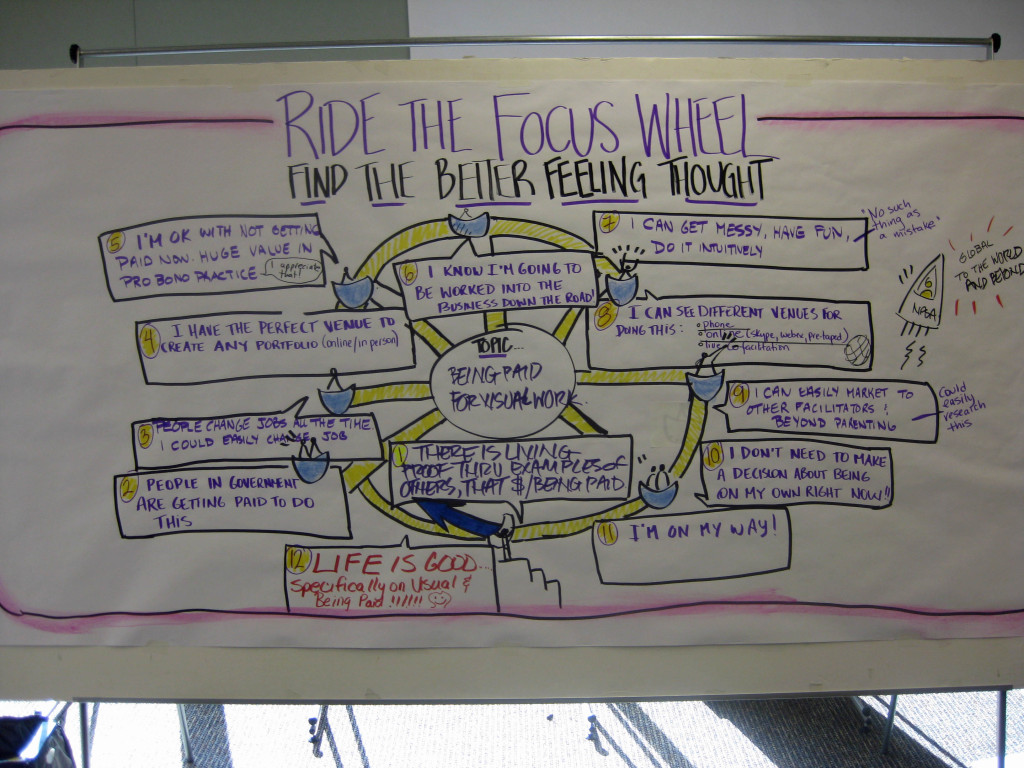 RIDE THE FOCUS WHEEL
FIND THE BETTER FEELING THOUGHT
TOPIC...
BEING PAID
FOR VISUAL WORK.
1 THERE IS LIVING
PROOF THRU EXAMPLES of
OTHERS, THAT $/BEING PAID
2 PEOPLE IN GOVERNMENT
ARE GETTING PAID TO DO
THIS
3 PEOPLE CHANGE JOBS ALL THE TIME
I COULD EASILY CHANGE JOB
4 I HAVE THE PERFECT VENUE TO
CREATE ANY PORTFOLIO (online/in person)
5 I'M OK WITH NOT GETTING
PAID NOW. HUGE VALUE IN
PRO BONO PRACTICE
I appreciate
that!
6 I KNOW I'M GOING TO
BE WORKED INTO THE
BUSINESS DOWN THE ROAD!
7 I CAN GET MESSY, HAVE FUN,
DO IT INTUITIVELY
"No such
thing as
a mistake"
8 I CAN SEE DIFFERENT VENUES FOR
DOING THIS: • phone
• online (skype, webex, pre-taped)
• live co facilitation
GLOBAL
TO THE WORLD
AND BEYOND
6
NASA
9 I CAN EASILY MARKET TO
OTHER FACILITATORS!
BEYOND PARENTING
Could
easily
research
this
10 I DON'T NEED TO MAKE
A DECISION ABOUT BEING
ON MY OWN RIGHT NOW!!
11 I'M ON MY WAY!
12 LIFE IS GOOD...
Specifically on Visual &
Being Paid !!!!!!!